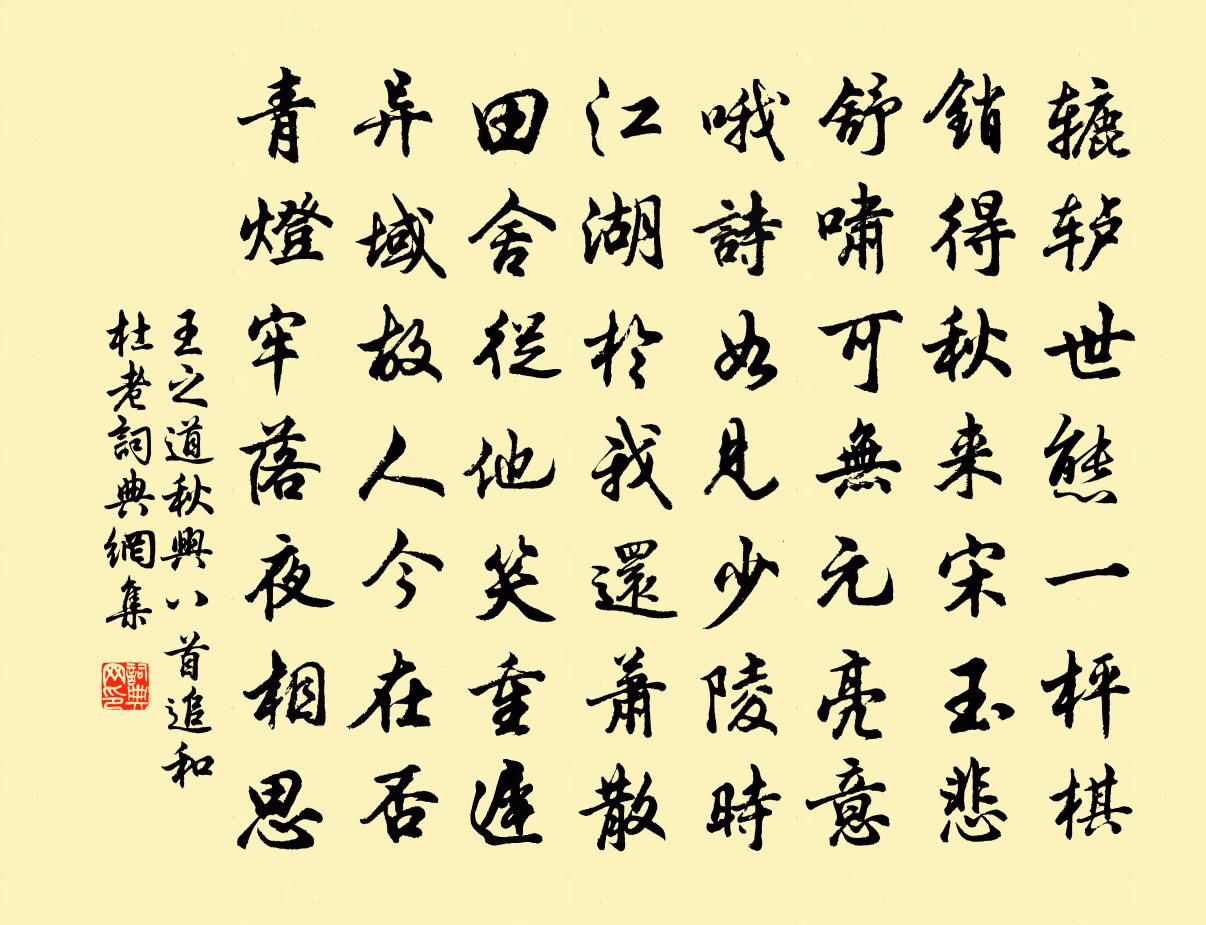 辘轳世态一枰棋
銷得秋来宋玉悲
舒嘯可無元亮意
哦詩如見少陵時
江湖於我還蕭散
田舍從他笑重遲
异域故人今在否
青燈牢落夜相思
王之道秋興八首追和
杜老詞典網集
詞典
网印